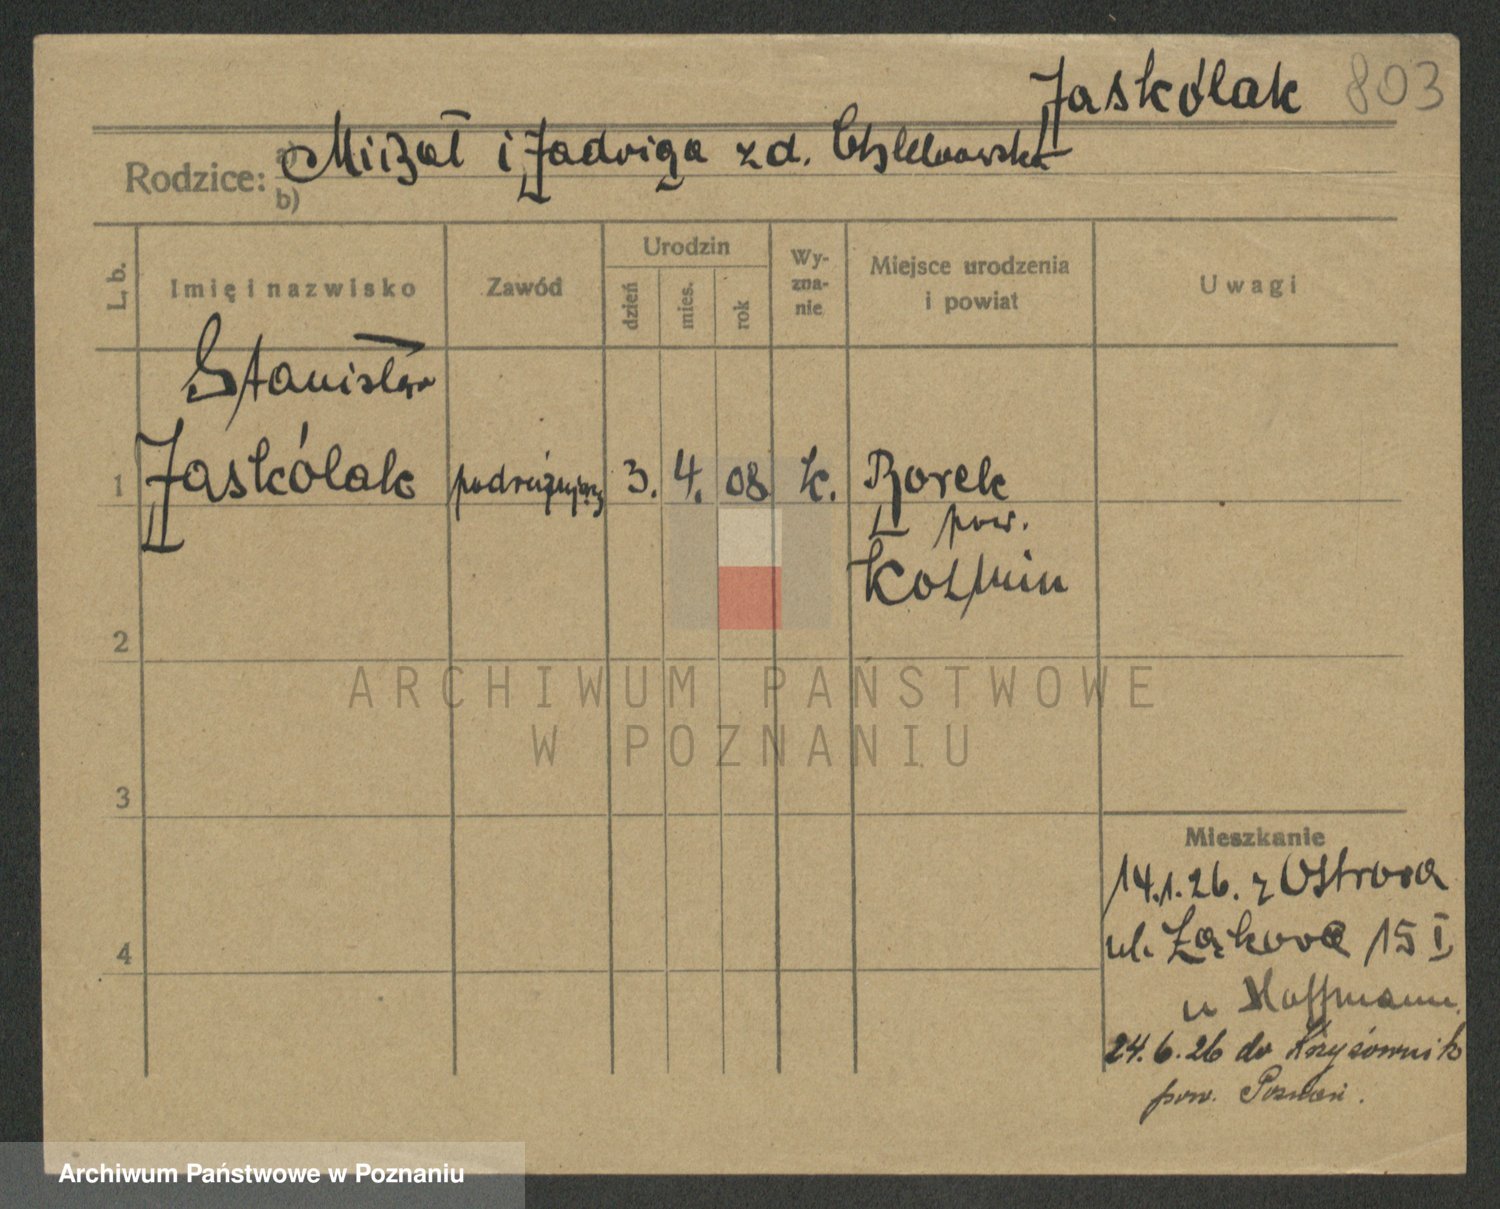 Jaskólak 803
Rodzice: a) Michał i Jadwiga z d.
b)
L. b.
Imię i nazwisko
Zawód
Urodzin
dzień
mies.
rok
Wy-
zna-
nie
Miejsce urodzenia
i powiat
Uwagi
Stanisław
1 Jaskólak podróżujący 3. 4. 08 k. Borek
pow.
Koźmin
2
3
4
ARCHIWUM PAŃSTWOWE
W POZNANIU
Mieszkanie
14.1.26. z Ostrowa
ul. Łąkowa 15 I
u Hoffmann.
24.6.26 do
pow. Poznań.
Archiwum Państwowe w Poznaniu